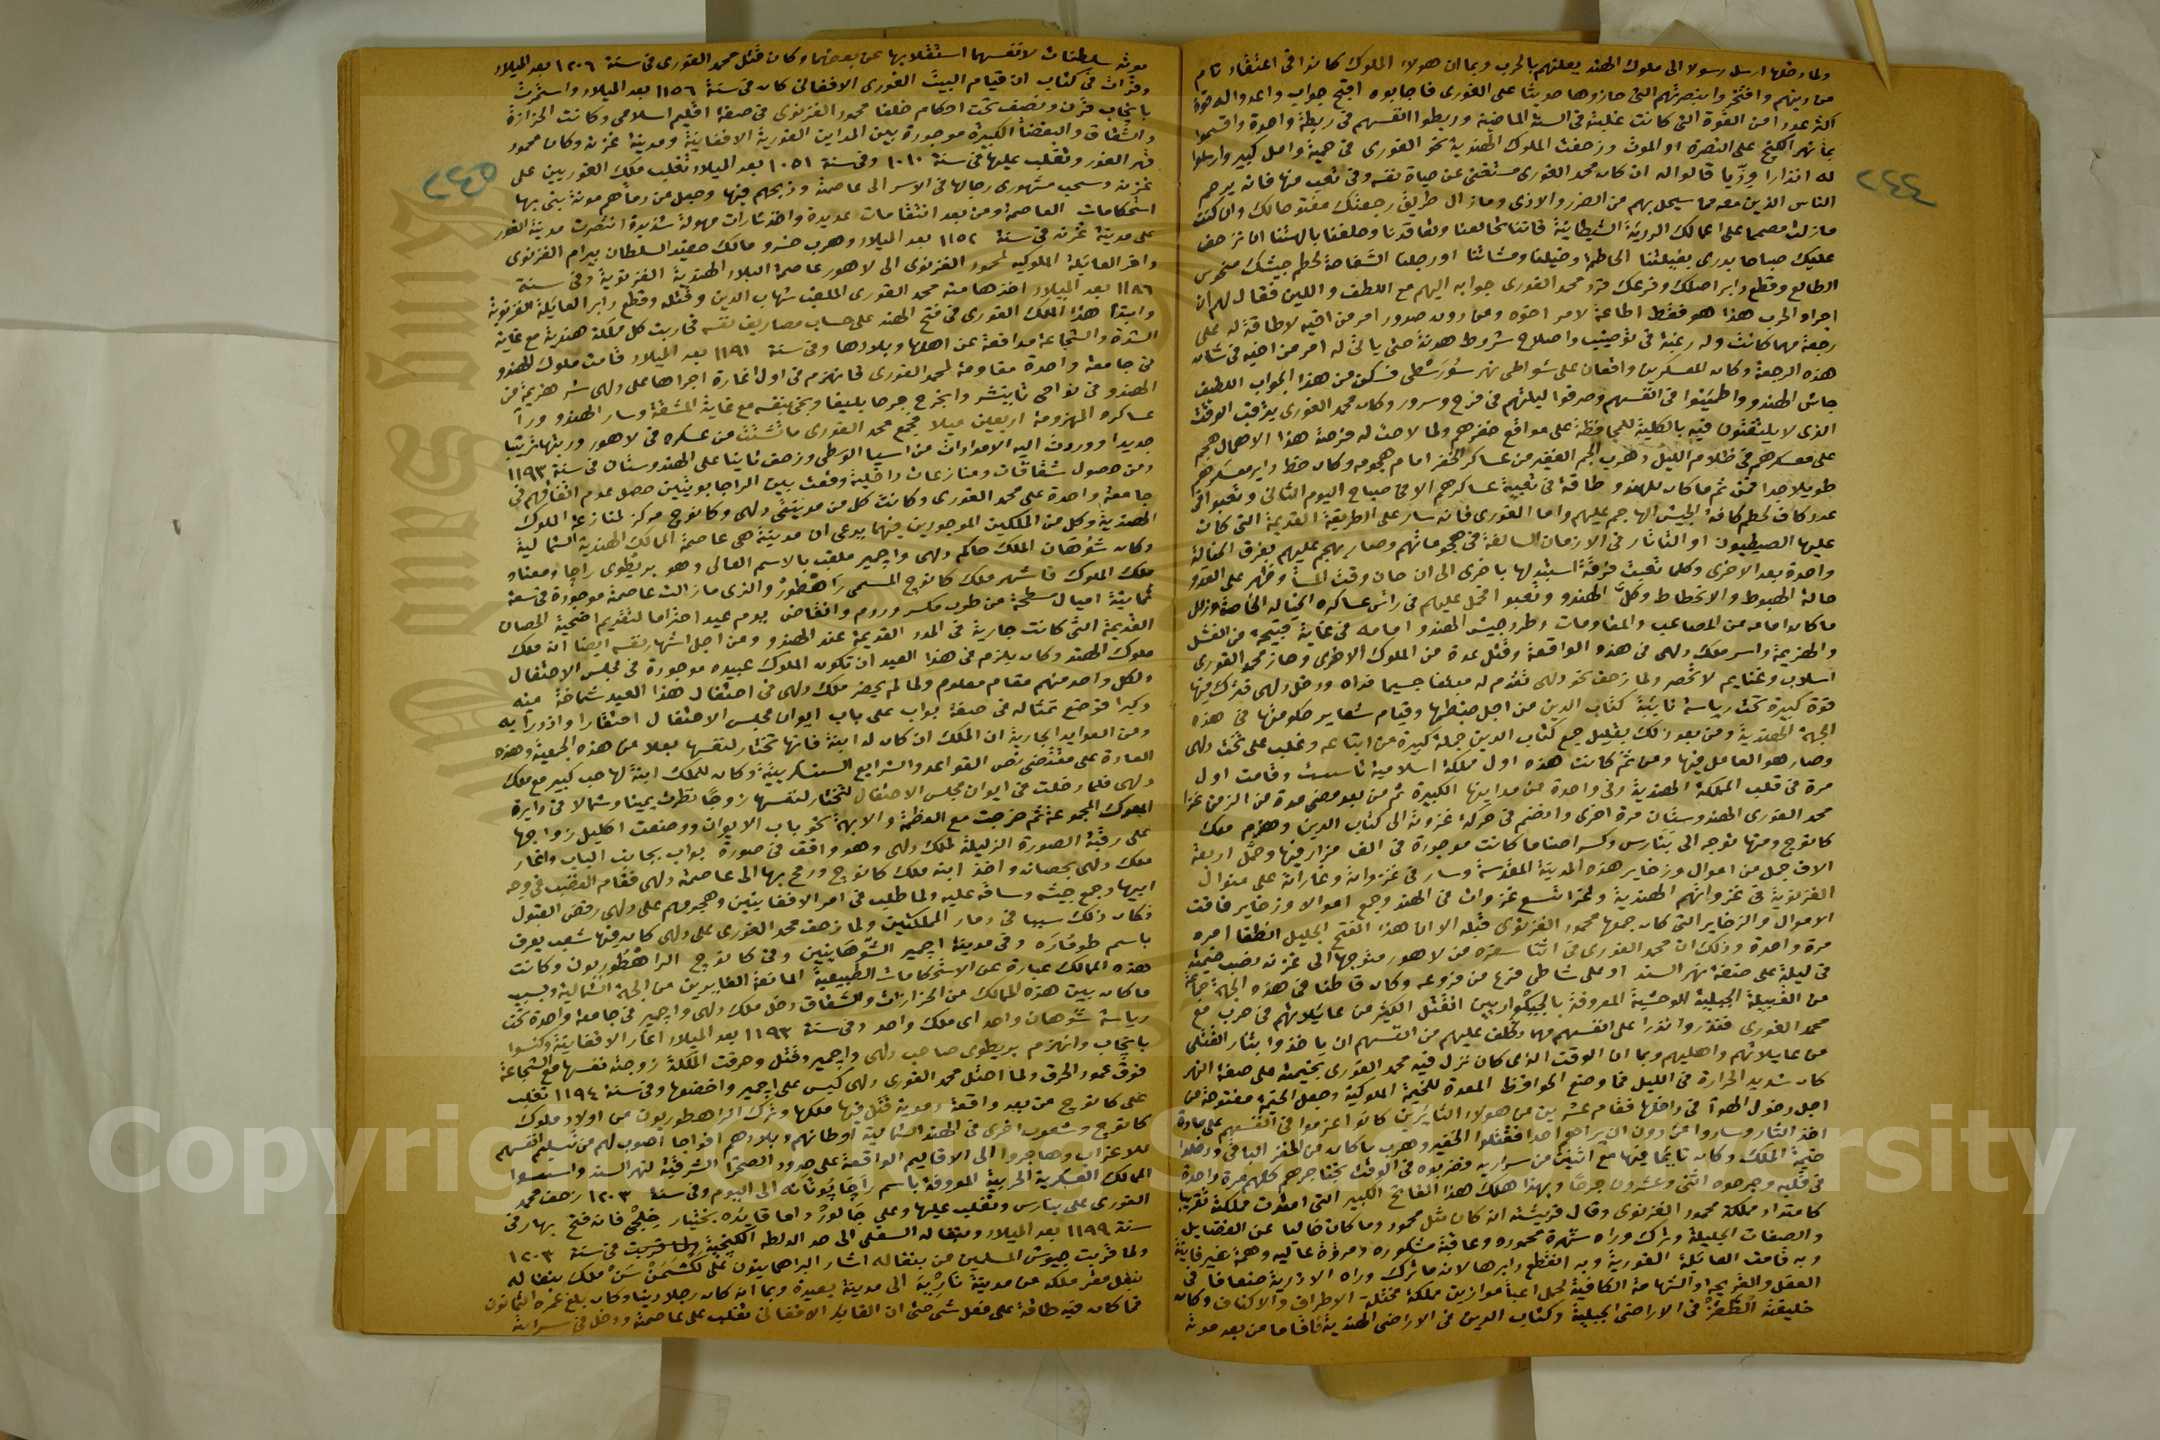 ٢٤٤
ولما دخلها ارسل رسولا الى ملوك الهند يعلنهم بالحرب وبما ان هولاء الملوك كانوا فى اعتقاد تام
من دينهم وافتخروا بنصرتهم التى حازوها حديثا على الغورى فاجابوه اقبح جواب واعدوا لهم قوة
اكثر عددا من القوة التى كانت غلبته فى السنة الماضية وربطوا انفسهم فى ربطة واحدة واقسموا
بماء نهر الكنج على النصرة او الموت وزحفت الملوك الهندية نحو الغورى فى هيئة وامل كبير وارسلوا
له انذارا وديا قالوا له ان كان محمد الغورى مستغنى عن حياة نفسه وفى تعب منها فانه يرحم
الناس الذين معه مما سيحل بهم من الضرر والاذى وما زال طريق رجعتك مفتوحا لك وان كنت
ما زلت مصمما على اعمالك الردية الشيطانية فاننا تحالفنا وتعاقدنا وحلفنا بالهتنا ان نزحف
عليك صباحا بدرى بفيلتنا الحاطمة وخيلنا ومشاتنا اورجلنا الشغاصة لحطم جيشك منحوس
الطالع وقطع دابر اصلك وفرعك فرد محمد الغورى جوابه اليهم مع اللطف واللين فقال لهم ان
اجراء الحرب هذا هو فقط اطاعة لامر اخوه ومن دون صدور امر من اخيه لا طاقة له على
رجعة مهما كانت وله رغبة فى توضيب واصلاح شروط هدنة حتى ياتى له امر من اخيه فى شان
هذه الرجعة وكان المعسكرين واقعان على شواطى نهر سورسطى فسكن من هذا الجواب اللطيف
جاش الهندو واطمئنوا فى انفسهم وصرفوا ليلتهم فى فرح وسرور وكان محمد الغورى يراقب الوقت
الذى لا يلتفتون فيه بالكلية للمحافظة على مواقع خفرهم ولما لاحت له فرصة هذا الاهمال هجم
على معسكرهم فى ظلام الليل وهرب الجم الغفير من عساكر الخفر امام هجومه وكان خط داير معسكرهم
طويلا جدا فمن ثم ما كان للهندو طاقة فى تعبية عساكرهم الا فى صباح اليوم الثانى وتعبوا فى
عدد كاف لحطم كافة الجيش الهاجم عليهم واما الغورى فانه سار على الطريقة القديمة التى كان
عليها الصيطيون او التاتار فى الازمان السالفة فى هجوماتهم وصار يهجم عليهم بفرق الخيالة
واحدة بعد الاخرى وكلما تعبت فرقة استبدلها باخرى الى ان حان وقت المسا وظهر على العدو
حالة الهبوط والانحطاط وكل الهندو وتعبوا فحمل عليهم فى راس عساكره الخيالة الخاصة وزلل
ما كان امامه من المصاعب والمقاومات وطرد جيش الهندو امامه فى غاية من الفشل
والهزيمة واسر ملك دلهى فى هذه الواقعة وقتل عدة من الملوك الاخرى وحاز محمد الغورى
اسلاب وغنايم لا تحصر ولما زحف نحو دلهى تقدم له مبلغا جسيما فداه ودخل دلهى فترك فيها
قوة كبيرة تحت رياسة نايبه كتاب الدين من اجل ضبطها وقيام شعاير حكومتها فى هذه
الجهة الهندية ومن بعد ذلك بقليل جمع كتاب الدين جملة كبيرة من اتباعه وغلب على تخت دلهى
وصار هو العامل فيها ومن ثم كانت هذه اول مملكة اسلامية تاسست وقامت اول
مرة فى قلب المملكة الهندية وفى واحدة من مداينها الكبيرة ثم من بعد مضى مدة من الزمن غزا
محمد الغورى الهندوستان مرة اخرى وانضم فى حركة غزوته الى كتاب الدين وهزم ملك
كانوج ومنها توجه الى بنارس وكسر اصناما كانت موجودة فى الف مزار فيها وحمل اربعة
الاف جمل من اموال وزخاير هذه المدينة المقدسة وسار فى غزواته وغاراته على منوال
الغزنوية فى غزواتهم الهندية وغزا تسع غزوات فى الهند وجمع اموالا وزخاير فاقت
الاموال والزخاير التى كان جمعها محمود الغزنوى قبله الا ان هذا الفتح الجليل انطفا امره
مرة واحدة وذلك ان محمد الغورى فى اثنا سفره من لاهور متوجها الى غزنه نصب خيمته
فى ليلة على ضفة نهر السند او على شاطى فرع من فروعه وكان قاطنا فى هذه الجهة جماعة
من القبيلة الجبلية الوحشية المعروفة بالجيكواربين انقتل الكثير من عايلاتهم فى حرب مع
محمد الغورى فنذروا نذرا على انفسهم مهما وكلف عليهم من انفسهم ان ياخذوا بثار القتلى
من عايلاتهم واهليهم وبما ان الوقت الذى كان نزل فيه محمد الغورى بخيمته على ضفة النهر
كان شديد الحرارة فى الليل فما وضع الحوافظ المعدة للخيمة الملوكية وجعل الخيمة مفتوحة من
اجل دخول الهوا فى داخلها فقام عشرين من هولاء الثايرين كانوا عزموا فى انفسهم على مادة
اخذ الثار وساروا من دون ان يراهم احد فقتلوا الخفير وهرب ما كان من الخفر الباقى ودخلوا
خيمة الملك وكان نايما فيها مع اثنين من سراريه فضربوه فى الوقت بخناجرهم كلهم مرة واحدة
فى قلبه وجرحوه اثنى وعشرون جرحا وبهذا هلك هذا الفاتح الكبير التى امتدت مملكته تقريبا
كامتداد مملكة محمود الغزنوى وقال فريشته انه كان مثل محمود وما كان خاليا من الفضايل
والصفات الجليلة وترك وراه شهرة محموده وعاقبة مشكوره ومروة عاليه وهمة غير فانية
وبه قامت العايلة الغورية وبه انقطع دابرها لانه ما ترك وراه الا ذرية ضعافا فى
العقل والقريحة او الشهامة الكافية لحمل اعبا موازين مملكة مختلة الاطراف والاكناف وكان
خليفته الظفر فى الاراضى الجبلية وكتاب الدين فى الاراضى الهندية فاقاما من بعد موته
٢٤٥
موته سلطنات لانفسهما استقلا بها عن بعضهما وكان قتل محمد الغورى فى سنة ١٢٠٦ بعد الميلاد
وقرات فى كتاب ان قيام البيت الغورى الافغانى كان فى سنة ١١٥٦ بعد الميلاد واستمرت
بانجاب قرن ونصف تحت احكام خلفا محمود الغزنوى فى صفة اقليم اسلامى وكانت الحزازة
والشقاق والبغضة الكبيرة موجودة بين المداين الغورية الافغانية ومدينة غزنه وكان محمود
قهر الغور وتغلب عليها فى سنة ١٠١٠ وفى سنة ١٠٥١ بعد الميلاد تغلب ملك الغوريين على
غزنه وسحب مشهورى رجالها فى الاسر الى عاصمته وذبحهم فيها وجعل من دماهم مونة بنى بها
استحكامات العاصمة ومن بعد انتقامات عديدة واخذ ثارات مهولة شديدة انتصرت مدينة الغور
على مدينة غزنه فى سنة ١١٥٢ بعد الميلاد وهرب خسرو مالك حفيد السلطان بيرام الغزنوى
واخر العايلة الملوكيه لمحمود الغزنوى الى لاهور عاصمة البلاد الهندية الغزنوية وفى سنة
١١٨٦ بعد الميلاد اخذها منه محمد الغورى الملقب شهاب الدين وقتله وقطع دابر العايلة الغزنوية
وابتدا هذا الملك الغورى فى فتح الهند على حساب مصاريف نفسه فحاربت كل مملكة هندية مع غاية
الشدة والشجاعة مدافعة عن اهلها وبلادها وفى سنة ١١٩١ بعد الميلاد قامت ملوك الهندو
فى جامعة واحدة مقاومة لمحمد الغورى فانهزم فى اول غارة اجراها على دلهى شر هزيمة من
الهندو فى نواحى تانيشر وانجرح جرحا بليغا ونجى بنفسه مع غاية المشقة وسار الهندو ورآ
عساكره المهزومة اربعين ميلا فجمع محمد الغورى ما تشتت من عسكره فى لاهور ورتبها ترتيبا
جديدا ووردت اليه الامدادات من اسيا الوسطى وزحف ثانيا على الهندوستان فى سنة ١١٩٣
ومن حصول شقاقات ومنازعات داخلية وقعت بين الراجابوتيين حصل عدم اتفاقهم فى
جامعة واحدة على محمد الغورى وكانت كل من مدينتى دلهى وكانوج مركز لمنازعة الملوك
الهندية وكل من الملكين الموجودين فيهما يدعى ان مدينته هى عاصمة الممالك الهندية الشمالية
وكان شوهان الملك حاكم دلهى واجمير ملقب بالاسم العالى وهو بريطوى راجا ومعناه
ملك الملوك فاشهر ملك كانوج المسمى راهطور والذى ما زالت عاصمته موجودة فى سعة
ثمانية اميال سطحة من طوب مكسر وردم وانقاض بيوم عيد احتراما لتقديم اضحية الحصان
القديمة التى كانت جارية فى المدد القديمة عند الهندو ومن اجل اشهار نفسه ايضا انه ملك
ملوك الهند وكان يلزم فى هذا العيد ان تكون الملوك عبيده موجودة فى مجلس الاحتفال
ولكل واحد منهم مقام معلوم ولما لم يحضر ملك دلهى فى احتفال هذا العيد شماخة منه
وكبرا فوضع تمثاله فى صفة بواب على باب ايوان مجلس الاحتفال احتقارا وازدرآ به
ومن العوايد الجارية ان الملك ان كان له ابنة فانها تختار لنفسها بعلا من هذه الجمعية وهذه
العادة على مقتضى نص القواعد والشرايع السنسكريتية وكان للملك ابنة لها حب كبير مع ملك
دلهى فلما دخلت فى ايوان مجلس الاحتفال لتختار لنفسها زوجا نظرت يمينا وشمالا فى دايرة
الملوك المجموعة ثم خرجت مع العظمة والابهة نحو باب الايوان ووضعت اكليل زواجها
على رقبة الصورة الرذيلة لملك دلهى وهو واقف فى صورة بواب بجانب الباب واغار
ملك دلهى بحصانه واخذ ابنة ملك كانوج ورمح بها الى عاصمة دلهى فقام الغضب فى وجه
ابيها وجمع جيشه وساقه عليه ولما طلب فى امر الافغانيين وهجومهم على دلهى رفض القبول
فكان ذلك سببا فى دمار المملكتين ولما زحف محمد الغورى على دلهى كان فيها شعب يعرف
باسم طوماره وفى مدينة اجمير الشوهانيين وفى كانوج الراهطوريون وكانت
هذه الممالك عبارة عن الاستحكامات الطبيعية المانعة الغايرين من الجهة الشمالية وبسبب
ما كان بين هذه الممالك من الحزازات والشقاق دخل ملك دلهى واجمير فى جامعة واحدة تحت
رياسة شوهان واحد اى ملك واحد وفى سنة ١١٩٣ بعد الميلاد اغار الافغانية وكنسوا
بانجاب وانهزم بريطوى صاحب دلهى واجمير وقتل وحرقت الملكة زوجته نفسها مع الشجاعة
فوق عمود الحرق ولما احتل محمد الغورى دلهى كبس على اجمير واخضعها وفى سنة ١١٩٤ تغلب
على كانوج من بعد واقعة دموية قتل فيها ملكها وترك الراهطوريون من اولاد ملوك
كانوج وشعوب اخرى فى الهند الشمالية اوطانهم وبلادهم افواجا اصوب لهم من تسليم انفسهم
للاعزاب وهاجروا الى الاقاليم الواقعة على حدود الصحرا الشرقية لنهر السند واسسوا
الممالك العسكرية الحربية المعروفة باسم راجابوتانه الى اليوم وفى سنة ١٢٠٣ زحف محمد
الغورى على بنارس وتغلب عليها وعلى جالور واما قايده بختيار خلجى فانه فتح بهار فى
سنة ١١٩٩ بعد الميلاد وبنغاله السفلى الى حد الدلطه الكنجية ولما قربت فى سنة ١٢٠٣
ولما قربت جيوش المسلمين من بنغاله اشار البراهمانيون على لكشمن سن ملك بنغاله
بنقل مقر ملكه من مدينة ناريبا الى مدينة بعيدة وبما انه كان رجلا دينا وكان بلغ عمره الثمانون
فما كان فيه طاقة على فعل شى حتى ان القايد الافغانى تغلب على عاصمته ودخل فى سرايته